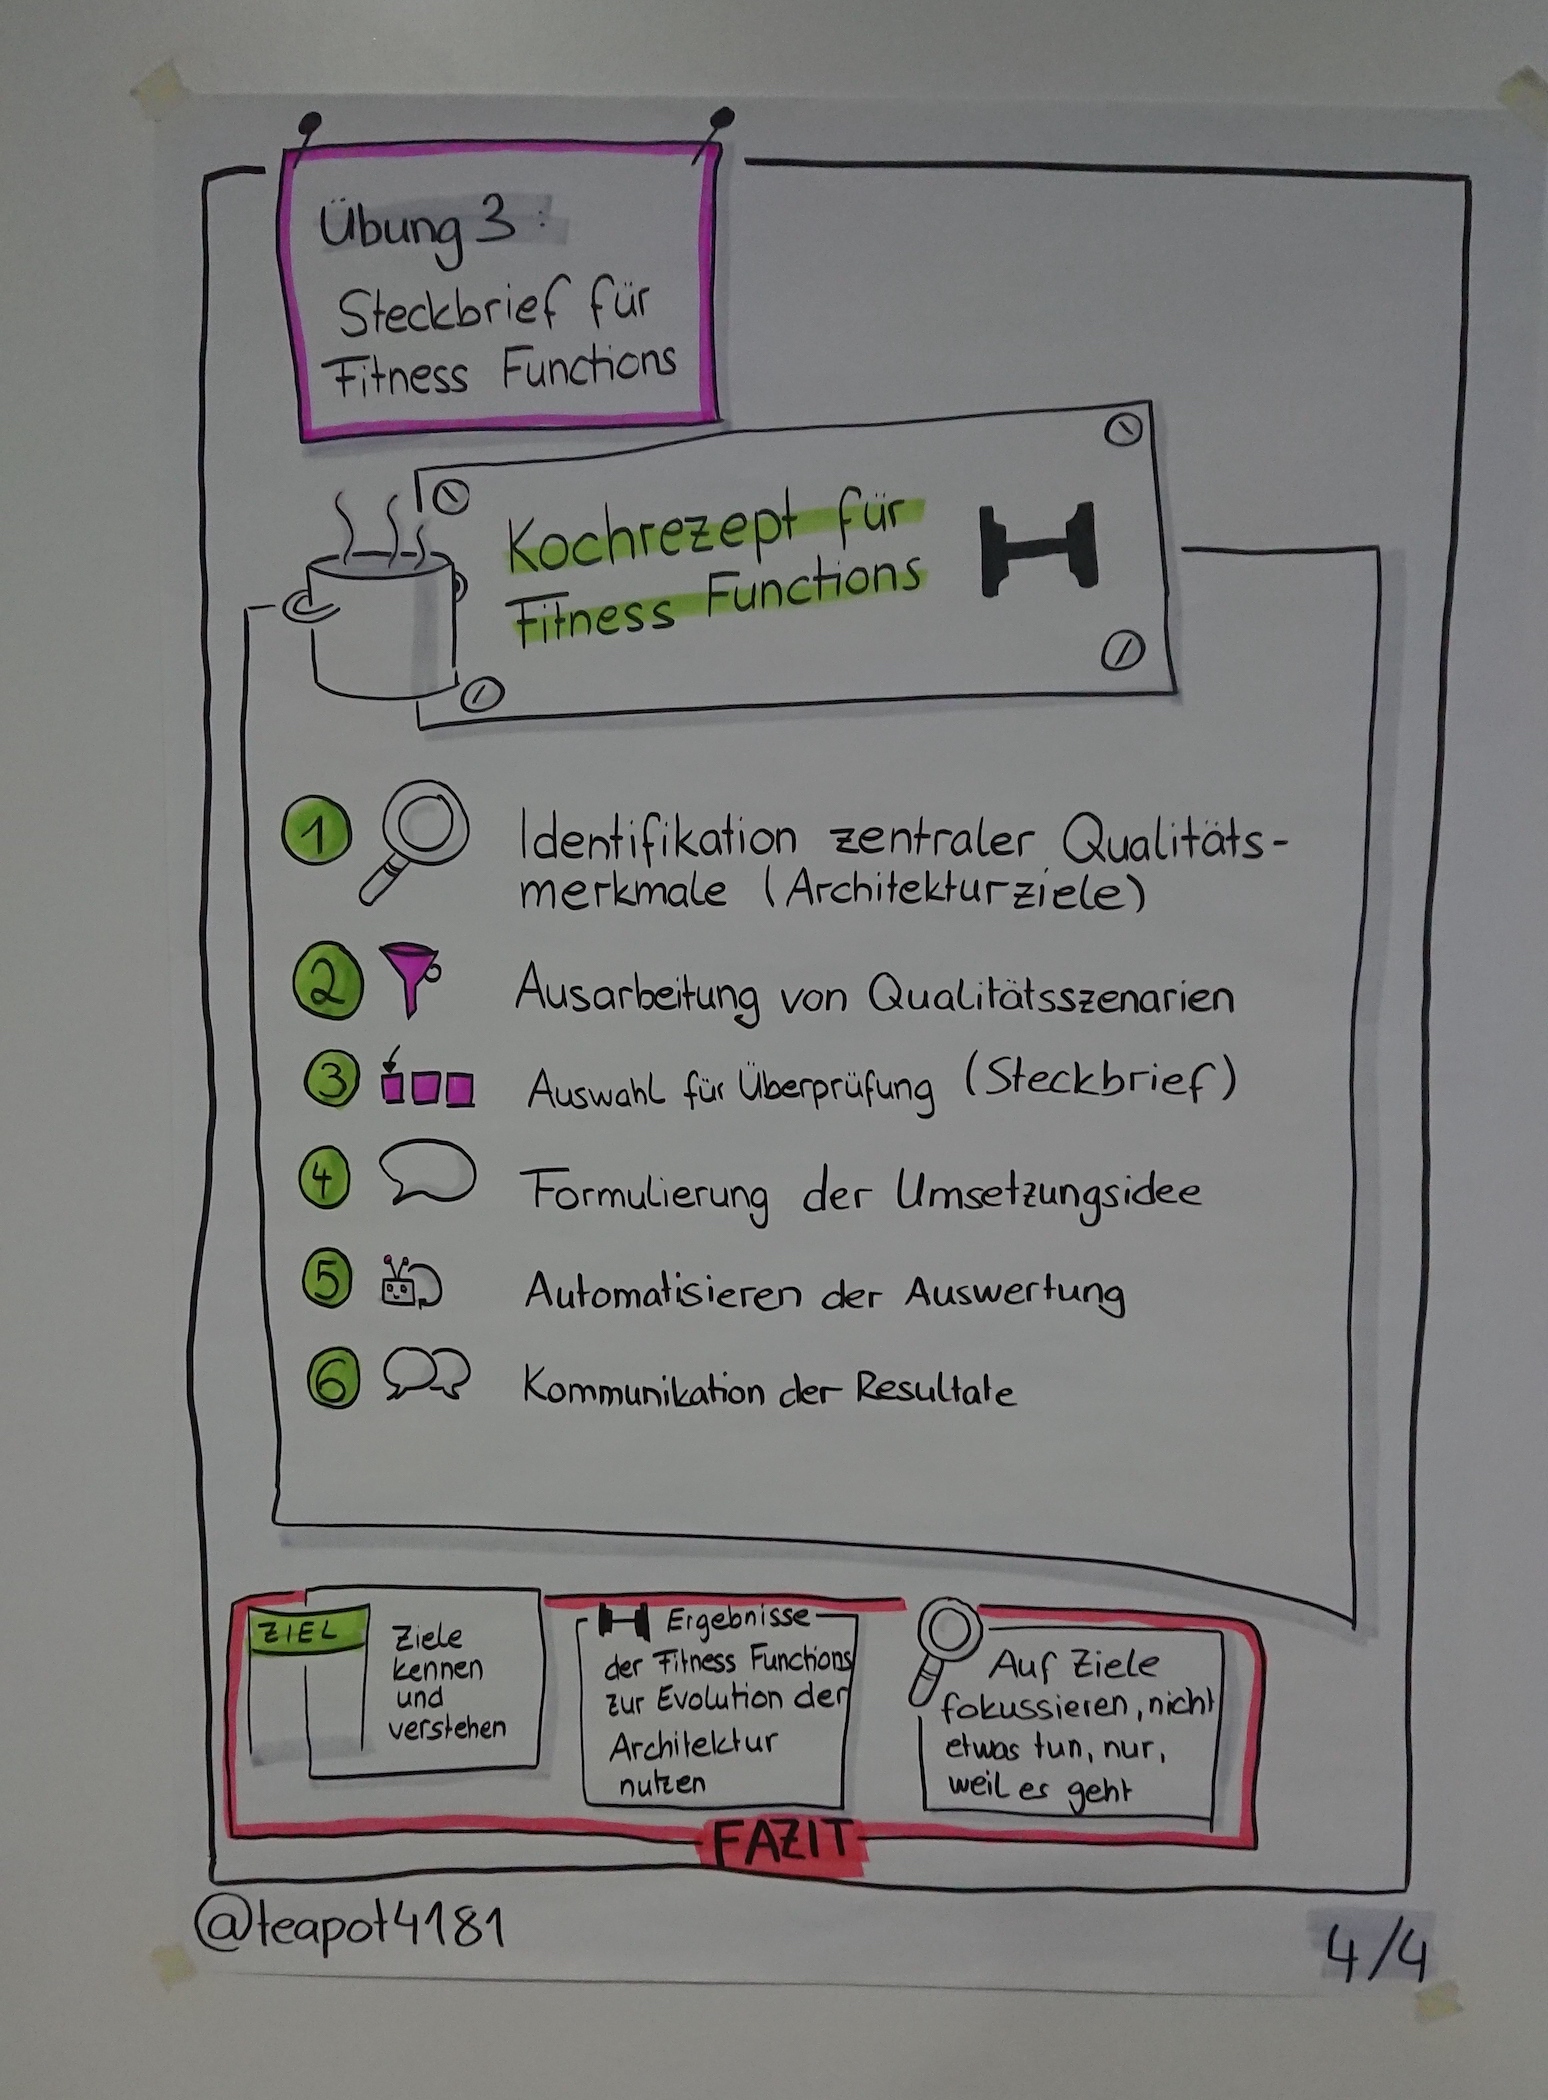 Übung 3:
Steckbrief für
Fitness Functions
Kochrezept für
Fitness Functions
1 Identifikation zentraler Qualitäts-
merkmale (Architekturziele)
2 Ausarbeitung von Qualitätsszenarien
3 Auswahl für Überprüfung (Steckbrief)
4 Formulierung der Umsetzungsidee
5 Automatisieren der Auswertung
6 Kommunikation der Resultate
ZIEL
Ziele
kennen
und
verstehen
Ergebnisse
der Fitness Functions
zur Evolution der
Architektur
nutzen
Auf Ziele
fokussieren, nicht
etwas tun, nur,
weil es geht
FAZIT
@teapot4181
4/4